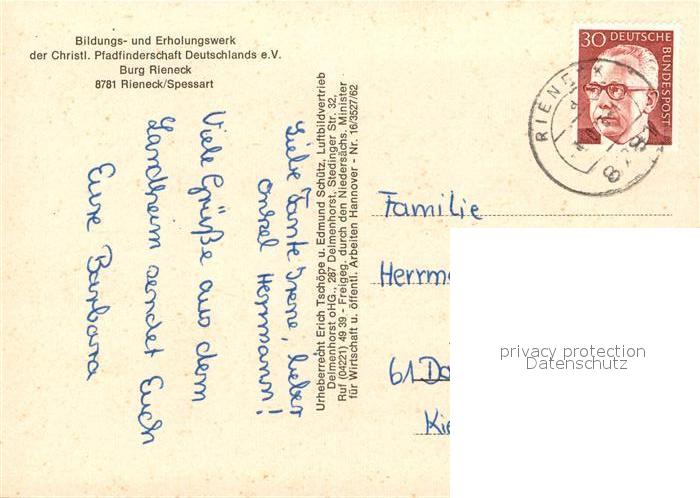 Bildungs- und Erholungswerk
der Christl. Pfadfinderschaft Deutschlands e.V.
Burg Rieneck
8781 Rieneck/Spessart
Liebe Tante Irene, lieber
Onkel Hermann!
Viele Grüße aus dem
Landheim sendet Euch
Eure Barbara
Urheberrecht Erich Tschöpe u. Edmund Schütz, Luftbildvertrieb
Delmenhorst oHG., 287 Delmenhorst, Stedinger Str. 32,
Ruf (04221) 49 39 - Freigeg. durch den Niedersächs. Minister
für Wirtschaft u. öffentl. Arbeiten Hannover - Nr. 16/3527/62
30 DEUTSCHE
BUNDESPOST
RIENECK
8781
Familie
Herrm
61 Da
Kie
privacy protection
Datenschutz